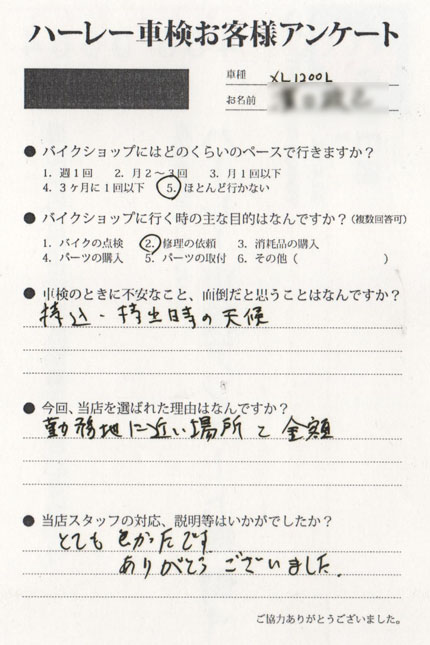 ハーレー車検お客様アンケート
車種 XL1200L
お名前
● バイクショップにはどのくらいのペースで行きますか？
1. 週1回 2. 月2～3回 3. 月1回以下
4. 3ヶ月に1回以下 5. ほとんど行かない
● バイクショップに行く時の主な目的はなんですか？(複数回答可)
1. バイクの点検 2. 修理の依頼 3. 消耗品の購入
4. パーツの購入 5. パーツの取付 6. その他（ ）
● 車検のときに不安なこと、面倒だと思うことはなんですか？
持込・持出時の天候
● 今回、当店を選ばれた理由はなんですか？
勤務地に近い場所と金額
● 当店スタッフの対応、説明等はいかがでしたか？
とても良かったです
ありがとうございました.
ご協力ありがとうございました。